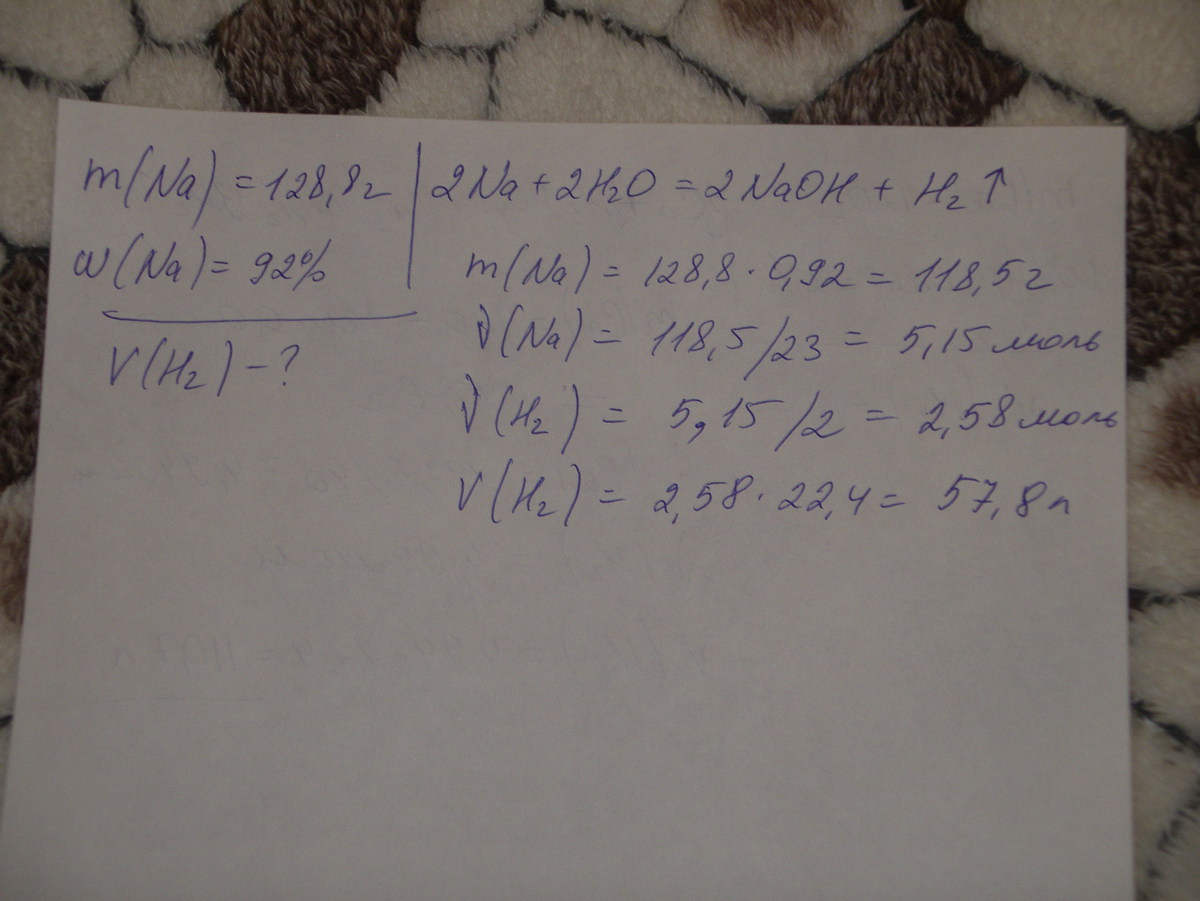 m(Na) = 128,8г
ω(Na) = 92%
V(H₂) – ?
2Na + 2H₂O = 2NaOH + H₂↑
m(Na) = 128,8 · 0,92 = 118,5г
ν(Na) = 118,5/23 = 5,15 моль
ν(H₂) = 5,15/2 = 2,58 моль
V(H₂) = 2,58 · 22,4 = 57,8л